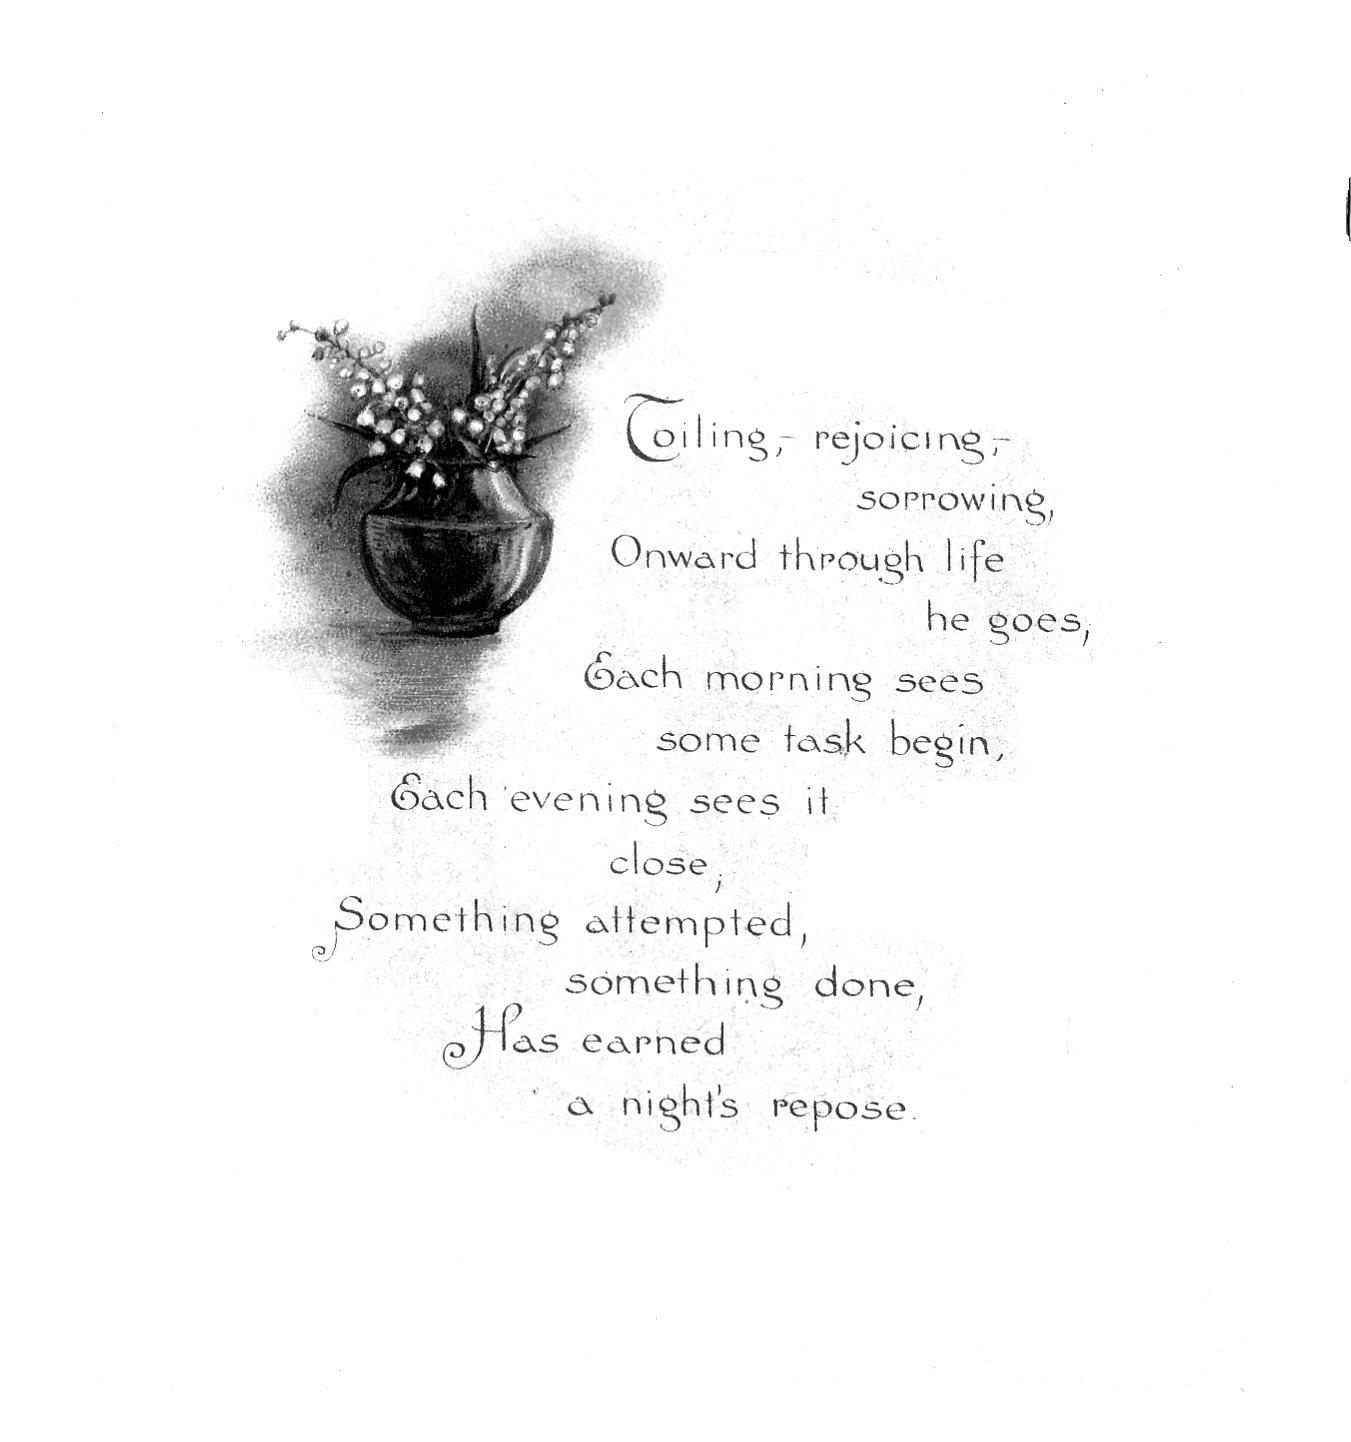 Toiling,- rejoicing,-
sorrowing,
Onward through life
he goes,
Each morning sees
some task begin,
Each evening sees it
close;
Something attempted,
something done,
Has earned
a night's repose.